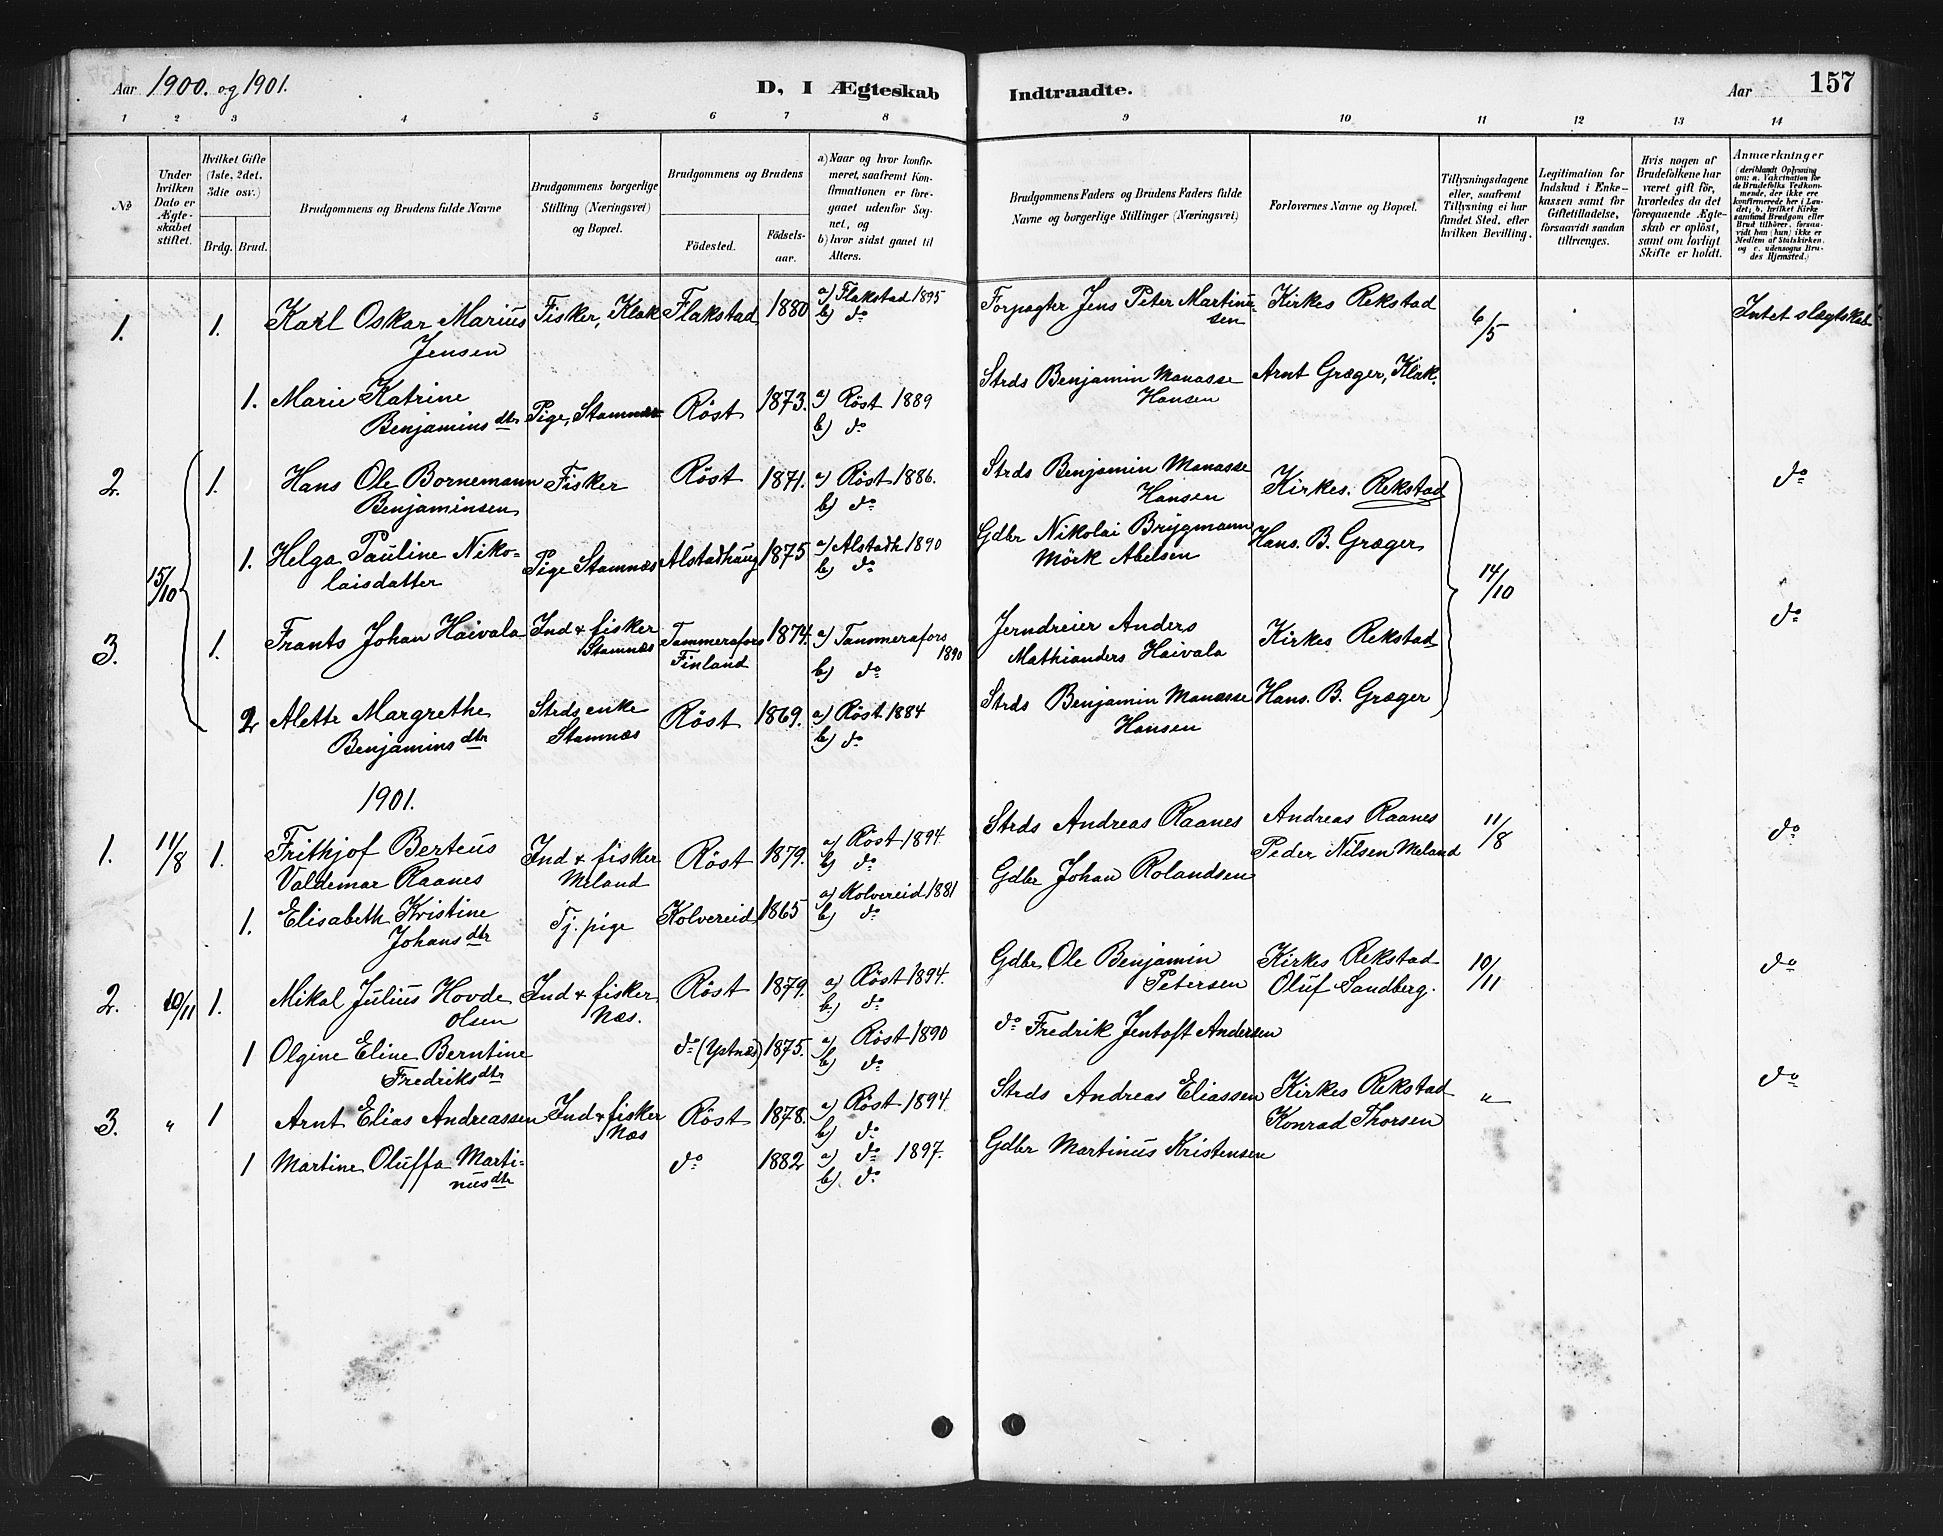 Aar 1900. og 1901.
D, I Ægteskab
Indtraadte.
Aar
157
1 2 3 4 5 6 7 8 9 10 11 12 13 14
No
Under hvilken Dato er Ægteskabet stiftet.
Hvilket Gifte (1ste, 2det, 3die osv.)
Brdg. Brud.
Brudgommens og Brudens fulde Navne
Brudgommens borgerlige Stilling (Næringsvei) og Bopæl.
Brudgommens og Brudens
Födested.
Födselsaar.
a) Naar og hvor konfirmeret, saafremt Konfirmationen er foregaaet udenfor Sognet, og
b) hvor sidst gaaet til Alters.
Brudgommens Faders og Brudens Faders fulde Navne og borgerlige Stillinger (Næringsvei)
Forlovernes Navne og Bopæl.
Tillysningsdagene eller, saafremt Tillysning ei har fundet Sted, efter hvilken Bevilling.
Legitimation for Indskud i Enkekassen samt for Giftetilladelse, forsaavidt saadan tiltrænges.
Hvis nogen af Brudefolkene har været gift för, hvorledes da det foregaaende Ægteskab er oplöst, samt om lovligt Skifte er holdt.
Anmærkninger
(deriblandt Oplysning om: a. Vakcination for de Brudefolks Vedkommende, der ikke ere konfirmerede her i Landet; b. hvilket Kirkesamfund Brudgom eller Brud tilhörer, forsaavidt han (hun) ikke er Medlem af Statskirken, og c. udensogns Brudes Hjemsted.)
1. 1. Karl Oskar Marius Fisker, Klak Flakstad 1880 a) Flakstad 1895 Forpagter Jens Peter Martin- Kirkes Rekstad 6/5 Intet slægtskab
Jensen b) do sen
1. Marie Katrine Pige, Stamnæs Röst 1873. a) Röst 1889 Strds Benjamin Manasse Arnt Græger, Klak.
Benjamins dtr b) do Hansen
2. 1. Hans Ole Bornemann Fisker Röst 1871. a) Röst 1886. Strds Benjamin Manasse Kirkes. Rekstad do
Benjaminsen b) do Hansen
15/10 1. Helga Pauline Niko- Pige Stamnæs Alstadhaug 1875 a) Alstadh 1890 Gdbr Nikolai Brygmann Hans. B. Græger 14/10
laisdatter b) do Mörk Abelsen
3. 1. Frants Johan Haivala Ind & fisker Tammerafors 1874. a) Tammerafors Jerndreier Anders Kirkes Rekstad do
Stamnæs Finland 1890 b) do Mathianders Haivala
2 Alette Margrethe Strds enke Röst 1869. a) Röst 1884 Strds Benjamin Manasse Hans. B. Græger
Benjamins dtr Stamnæs b) do Hansen
1901.
1. 11/8 1. Frithjof Berteus Ind & fisker Röst 1879. a) Röst 1894. Strds Andreas Raanes Andreas Raanes 11/8 do
Valdemar Raanes Meland b) do Peder Nilsen Meland
1. Elisabeth Kristine Tj. pige Kolvereid 1865 a) Kolvereid 1881 Gdbr Johan Rolandsen
Johans dtr b) do
2. 10/11 1. Mikal Julius Hovde Ind & fisker Röst 1879. a) Röst 1894. Gdbr Ole Benjamin Kirkes Rekstad 10/11 do
Olsen Næs. b) do Petersen Oluf Sandberg.
1 Olgine Eline Berntine do (Ystnæs) 1875. a) Röst 1890 do Fredrik Jentoft Andersen
Fredriks dtr b) do
3. " 1 Arnt Elias Andreassen Ind & fisker Röst 1878. a) Röst 1894. Strds Andreas Eliassen Kirkes Rekstad " do
Næs b) do Konrad Thorsen
1 Martine Oluffa Marti- do 1882 a) do 1897. Gdbr Martinus Kristensen
nus dtr b) do